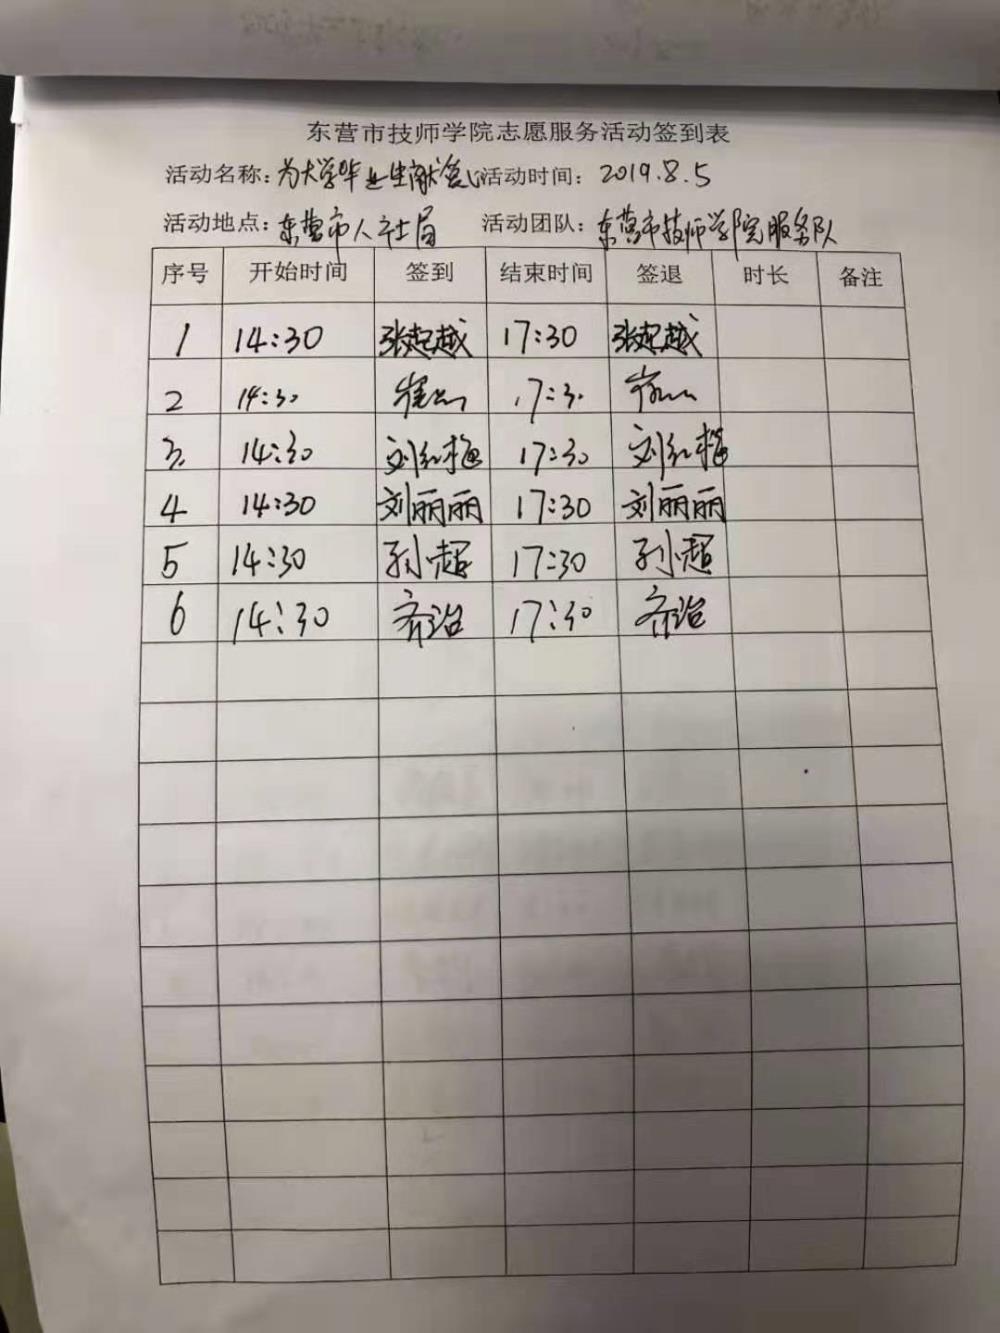 东营市技师学院志愿服务活动签到表
活动名称：为大学毕业生献爱心 活动时间：2019.8.5
活动地点：东营市人社局 活动团队：东营市技师学院服务队
序号 开始时间 签到 结束时间 签退 时长 备注
1 14:30 张起越 17:30 张起越
2 14:30 崔 17:30 崔
3. 14:30 刘红梅 17:30 刘红梅
4 14:30 刘丽丽 17:30 刘丽丽
5 14:30 孙超 17:30 孙超
6 14:30 齐治 17:30 齐治